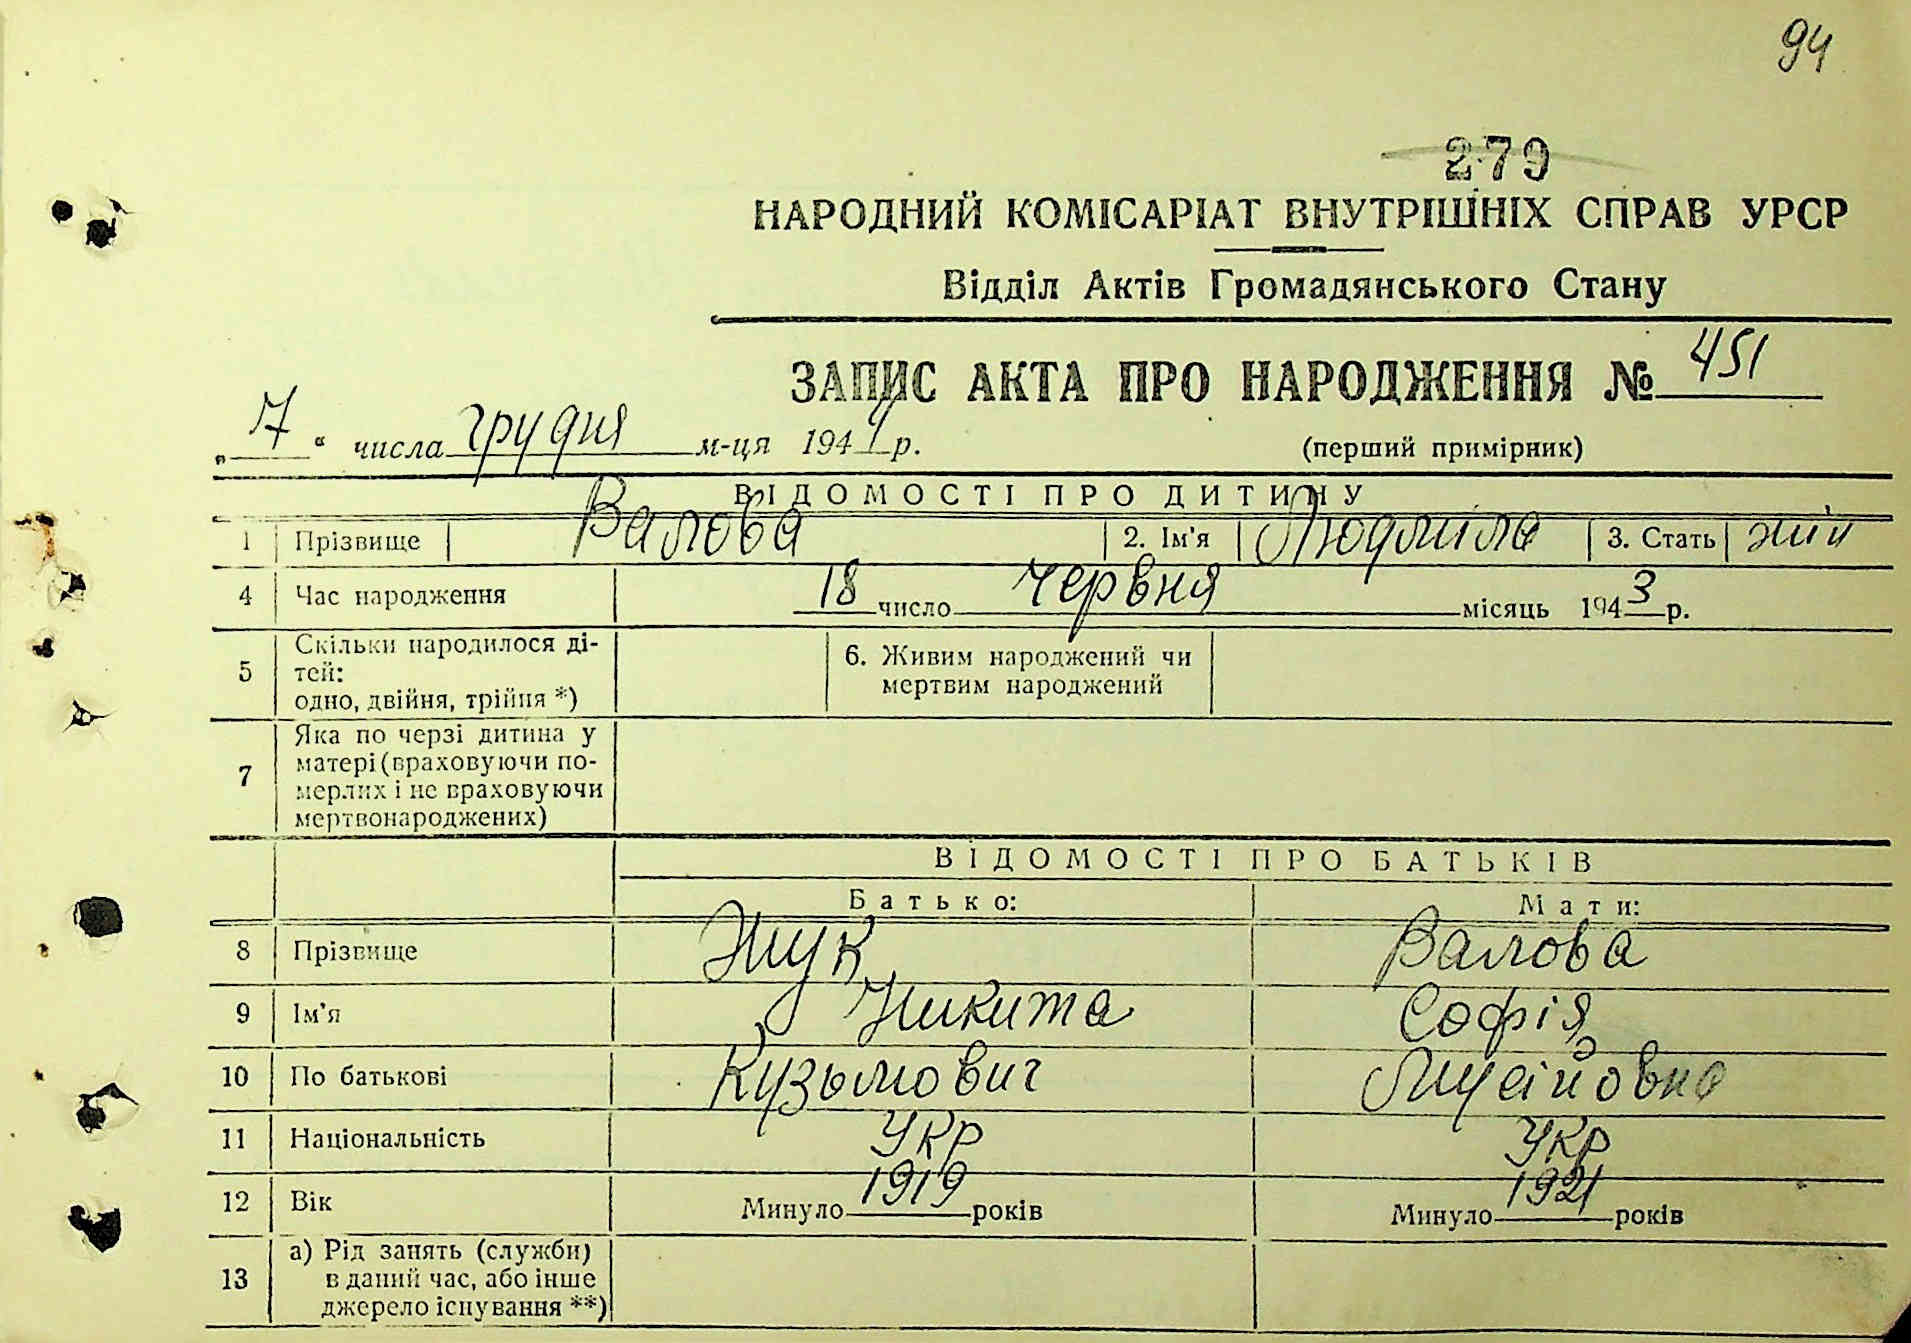 94
279
НАРОДНИЙ КОМІСАРІАТ ВНУТРІШНІХ СПРАВ УРСР
Відділ Актів Громадянського Стану
ЗАПИС АКТА ПРО НАРОДЖЕННЯ № 451
„ 7 “ числа грудня м-ця 1944 р.
(перший примірник)
ВІДОМОСТІ ПРО ДИТИНУ
1 Прізвище Валова 2. Ім'я Людмила 3. Стать жін
4 Час народження 18 число червня місяць 1943 р.
5 Скільки народилося ді-
тей:
одно, двійня, трійня *)
6. Живим народжений чи
мертвим народжений
7 Яка по черзі дитина у
матері (враховуючи по-
мерлих і не враховуючи
мертвонароджених)
ВІДОМОСТІ ПРО БАТЬКІВ
Батько: Мати:
8 Прізвище Жук Валова
9 Ім'я Никита Софія
10 По батькові Кузьмович Мусійовна
11 Національність Укр Укр
12 Вік Минуло 1919 років Минуло 1921 років
13 а) Рід занять (служби)
в даний час, або інше
джерело існування **)